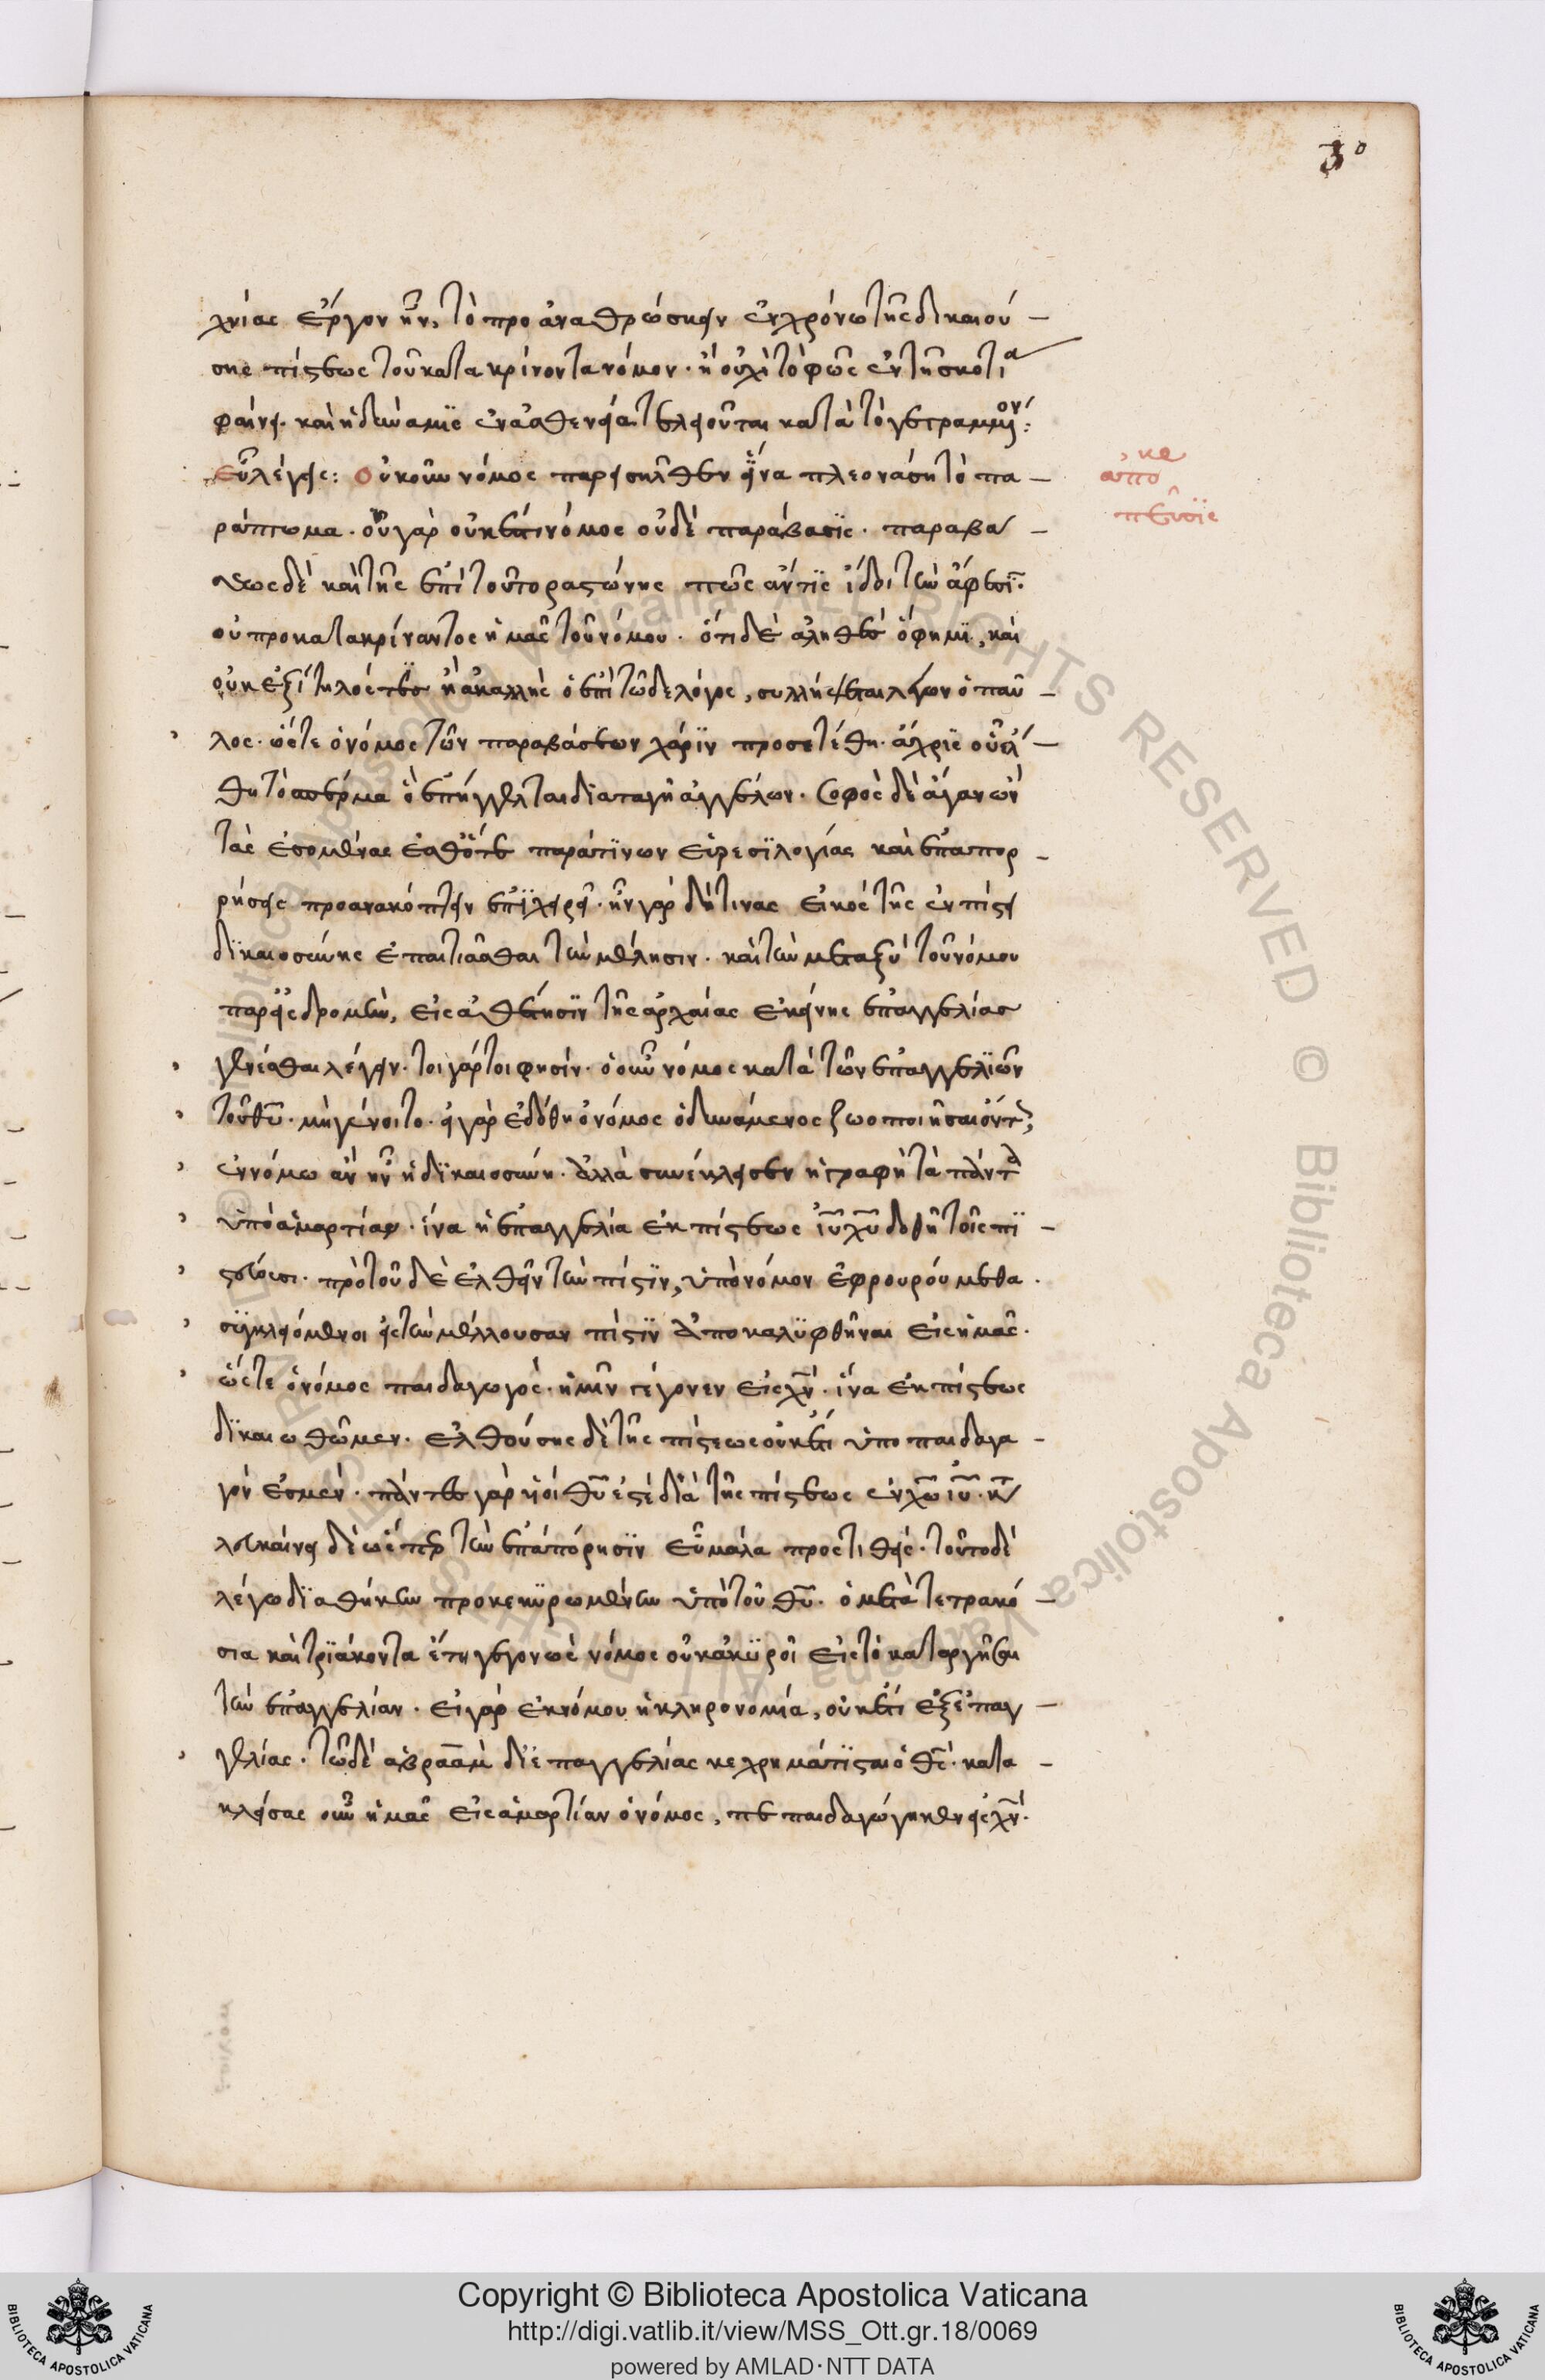 30
χνίας ἔργον ἦν, τὸ προαναθρώσκειν ἐν χρόνω τῆς δικαιού –
σης πίστεως τοῦ κατακρίνοντα νόμον. ἢ οὐχὶ τὸ φῶς ἐν τῆ σκοτία
φαίνει. καὶ ἡ δύναμϊς ἐν ἀσθενεία τελειοῦται κατὰ τὸ γεγραμμένον:
Εὖ λέγεις: Οὐκοῦν νόμος παρεισῆλθεν ἵνα πλεονάση τὸ πα –
κε
απο
πεῦσϊς
ράπτωμα. οὗ γὰρ οὐκ ἔστι νόμος οὐδὲ παράβασϊς. παραβά –
σεως δὲ καὶ τῆς ἐπὶ τοῦτο ραστώνης πῶς ἄν τϊς ἴδοι τὴν ἄφεσϊν.
οὐ προκατακρίναντος ἡμᾶς τοῦ νόμου. ὅτι δὲ ἀληθὲς ὅ φημϊ, καὶ
οὐκ ἐξίτηλός τϊς ἢ ἀκαλλὴς ὁ ἐπὶ τῶδε λόγος, συλλήψεται λέγων ὁ παῦ –
λος. ὥστε ὁ νόμος τῶν παραβάσεων χάρϊν προσετέθη. ἄχρϊς οὗ ἔλ –
θη τὸ σπέρμα ὃ ἐπήγγελται διαταγῆ ἀγγέλων. σοφὸς δὲ ἄγαν ὢν
τὰς ἐσομένας ἔσθ' ὅτε παρά τϊνων εὑρεσϊλογίας καὶ ἐπαπορ –
ρήσεις προανακόπτειν ἐπϊχειρεῖ. ἦν γὰρ δή τινας εἰκὸς τῆς ἐν πίστει
δϊκαιοσύνης ἐπαιτιᾶσθαι τὴν μέλησιν. καὶ τὴν μεταξὺ τοῦ νόμου
παρεισδρομὴν, εἰς ἀθέτησϊν τῆς ἀρχαίας ἐκείνης ἐπαγγελίας
γενέσθαι λέγειν. τοιγάρτοι φησίν. ὁ οὖν νόμος κατὰ τῶν ἐπαγγελϊῶν
τοῦ θυ. μὴ γένοιτο. εἰ γὰρ ἐδόθη ὁ νόμος ὁ δυνάμενος ζωοποιῆσαι ὄντως
ἐν νόμω ἂν ἦν ἡ δϊκαιοσύνη. ἀλλὰ συνέκλεισεν ἡ γραφὴ τὰ πάντα
ὑπὸ ἁμαρτίαν. ἵνα ἡ ἐπαγγελία ἐκ πίστεως ιυ χυ δοθῆ τοῖς πϊ –
στεύουσι. πρὸ τοῦ δὲ ἐλθεῖν τὴν πίστϊν, ὑπὸ νόμον ἐφρουρούμεθα.
συγκλειόμενοι εἰς τὴν μέλλουσαν πίστϊν ἀποκαλϋφθῆναι εἰς ἡμᾶς.
ὥστε ὁ νόμος παιδαγωγὸς. ἡμῖν γέγονεν εἰς χν. ἵνα ἐκ πίστεως
δϊκαιωθῶμεν. ἐλθούσης δὲ τῆς πίστεως οὐκέτι ὑπὸ παιδαγω –
γόν ἐσμεν. πάντες γὰρ υἱοὶ θυ ἐστὲ διὰ τῆς πίστεως ἐν χω ιυ. καὶ
δὲ ὥσπερ τὴν ἐπαπόρησϊν εὖ μάλα προστιθεὶς. τοῦτο δὲ
λέγω δϊαθήκην προκεκϋρωμένην ὑπὸ τοῦ θυ. ὁ μετὰ τετρακό –
σια καὶ τρϊάκοντα ἔτη γεγονὼς νόμος οὐκ ἀκϋροῖ εἰς τὸ καταργῆσαι
τὴν ἐπαγγελίαν. εἰ γὰρ ἐκ νόμου ἡ κληρονομία, οὐκέτι ἐξ ἐπαγ –
γελίας. τῶ δὲ ἀβραὰμ δϊ' ἐπαγγελίας κεχρημάτϊσται ὁ θς. κατα –
κλείσας οὖν ἡμᾶς εἰς ἁμαρτίαν ὁ νόμος, πεπαιδαγώγηκεν εἰς χν.
Copyright © Biblioteca Apostolica Vaticana
http://digi.vatlib.it/view/MSS_Ott.gr.18/0069
powered by AMLAD·NTT DATA